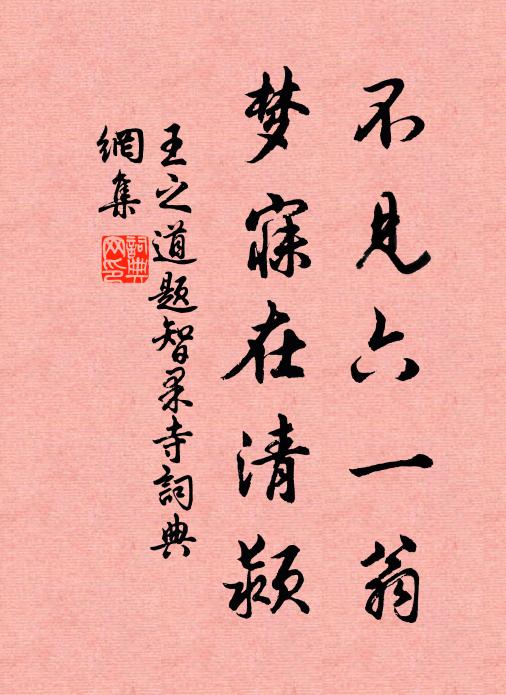 不见六一翁
梦寐在清颍
王之道题智果寺词典
網集
詞典網印